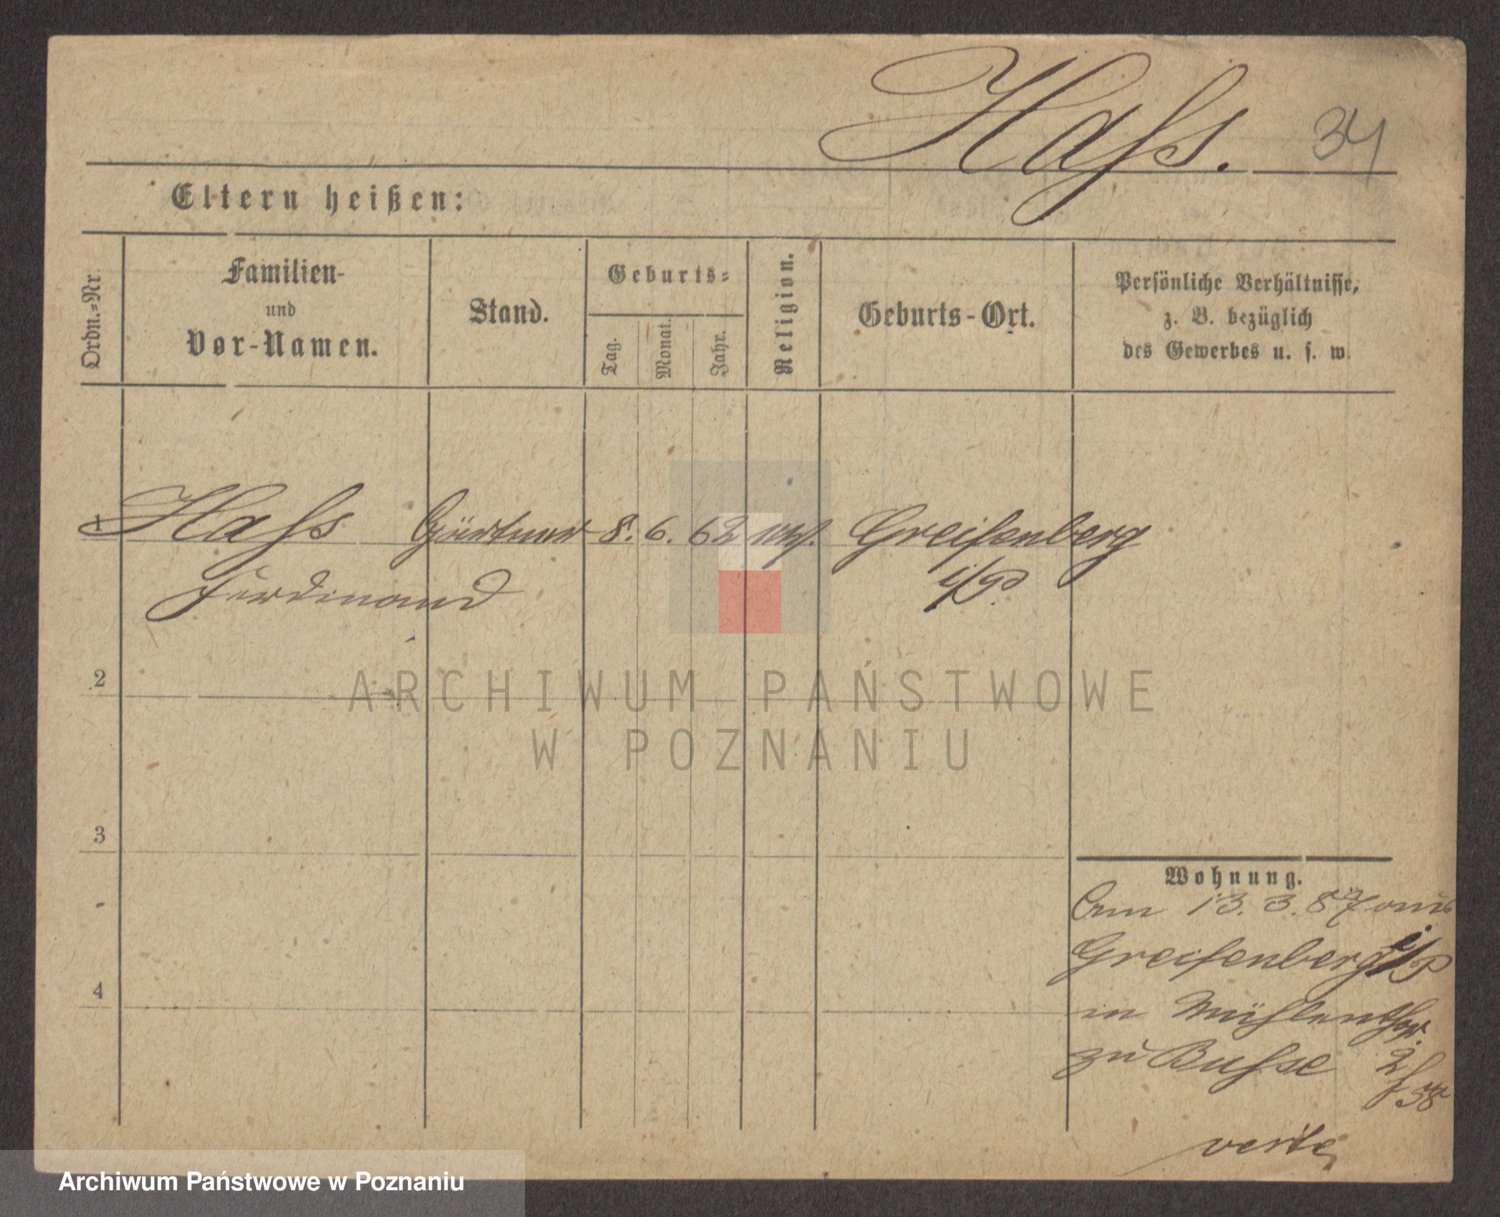 Haſs. 34
Eltern heißen:
Ordn.-Nr.
Familien-
und
Vor-Namen.
Stand.
Geburts-
Tag.
Monat.
Jahr.
Religion.
Geburts-Ort.
Persönliche Verhältnisse,
z. B. bezüglich
des Gewerbes u. s. w.
1 Haſs Gärtner 8. 6. 62 Greifenberg
Ferdinand i/P.
2
3
4
Wohnung.
13. 3. 87 aus
Greifenberg i/P
in Mühlenthor
zu Busse 2/38
verte
ARCHIWUM PAŃSTWOWE
W POZNANIU
Archiwum Państwowe w Poznaniu